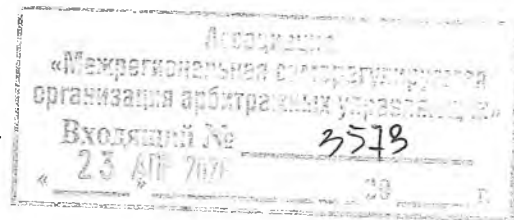 Ассоциация
«Межрегиональная саморегулируемая
организация арбитражных управляющих»
Входящий № 3573
« 23 АПР » 20 г.